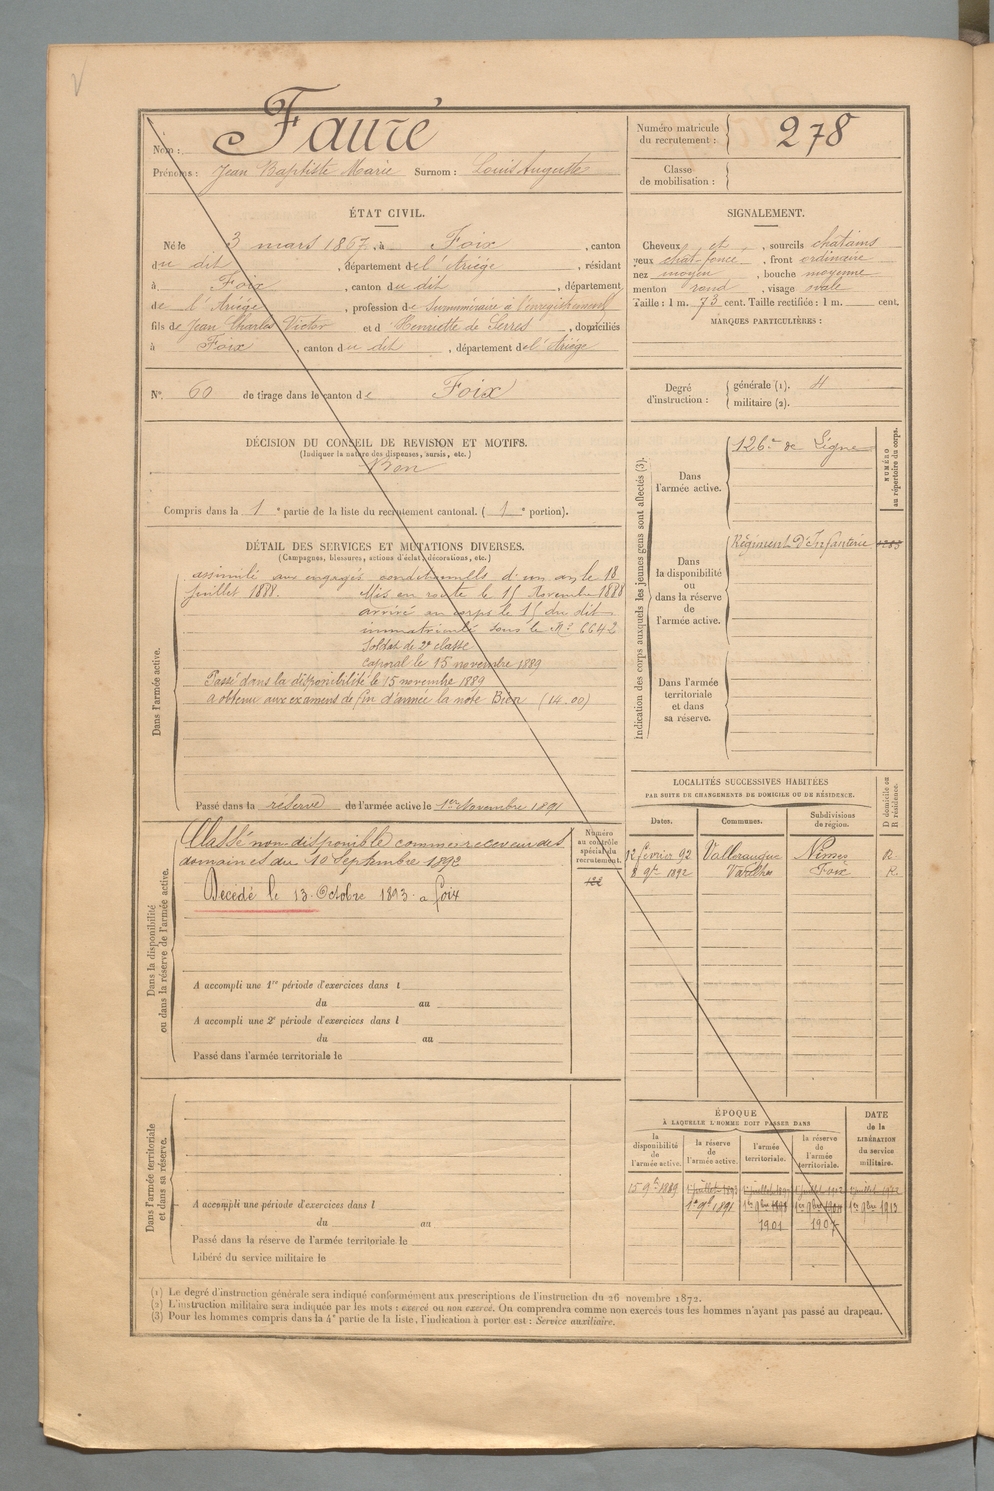 Nom : Faure
Prénoms : Jean Baptiste Marie Surnom : Louis Auguste
Numéro matricule du recrutement : 278
Classe de mobilisation :
ÉTAT CIVIL.
Né le 3 mars 1867, à Foix, canton
du dit, département de l'Ariège, résidant
à Foix, canton du dit, département
de l'Ariège, profession de Surnuméraire à l'enregistrement
fils de Jean Charles Victor et d Henriette de Serres, domiciliés
à Foix, canton du dit, département de l'Ariège
SIGNALEMENT.
Cheveux et, sourcils chatains
yeux chat-foncé, front ordinaire
nez moyen, bouche moyenne
menton rond, visage ovale
Taille : 1 m. 73 cent. Taille rectifiée : 1 m. cent.
MARQUES PARTICULIÈRES :
N°. 60 de tirage dans le canton de Foix
Degré d'instruction : générale (1). 4
militaire (2).
DÉCISION DU CONSEIL DE REVISION ET MOTIFS.
(Indiquer la nature des dispenses, sursis, etc.)
Bon
Compris dans la 1e partie de la liste du recrutement cantonal. (1e portion).
DÉTAIL DES SERVICES ET MUTATIONS DIVERSES.
(Campagnes, blessures, actions d'éclat, décorations, etc.)
Dans l'armée active.
assimilé aux engagés conditionnells d'un an le 18
juillet 1888. Mis en route le 15 Novembre 1888
arrivé au corps le 15 du dit
immatriculé sous le No 6642
Soldat de 2e classe
caporal le 15 novembre 1889
Passé dans la disponibilité le 15 novembre 1889
a obtenu aux examens de fin d'année la note Bien (14.00)
Passé dans la réserve de l'armée active le 1er Novembre 1891
Indication des corps auxquels les jeunes gens sont affectés (3).
NUMÉRO au répertoire du corps.
Dans l'armée active.
126e de Ligne
Dans la disponibilité ou dans la réserve de l'armée active.
Régiment d'Infanterie
Dans l'armée territoriale et dans sa réserve.
Dans la disponibilité ou dans la réserve de l'armée active.
Numéro au contrôle spécial du recrutement.
122
Classé non-disponible comme receveur des
domaines du 10 Septembre 1892
Décédé le 13 Octobre 1893 a foix
A accompli une 1re période d'exercices dans l
du au
A accompli une 2e période d'exercices dans l
du au
Passé dans l'armée territoriale le
LOCALITÉS SUCCESSIVES HABITÉES
PAR SUITE DE CHANGEMENTS DE DOMICILE OU DE RÉSIDENCE.
Dates. Communes. Subdivisions de région. D domicile ou R résidence.
12 février 92 Valleraugue Nimes R.
8 9bre 1892 Varilhes Foix R.
Dans l'armée territoriale et dans sa réserve.
A accompli une période d'exercices dans l
du au
Passé dans la réserve de l'armée territoriale le
Libéré du service militaire le
ÉPOQUE
À LAQUELLE L'HOMME DOIT PASSER DANS
la disponibilité de l'armée active. la réserve de l'armée active. l'armée territoriale. la réserve de l'armée territoriale. DATE de la LIBÉRATION du service militaire.
15 9bre 1889
1er 9bre 1891
1901 1907
(1) Le degré d'instruction générale sera indiqué conformément aux prescriptions de l'instruction du 26 novembre 1872.
(2) L'instruction militaire sera indiquée par les mots : exercé ou non exercé. On comprendra comme non exercés tous les hommes n'ayant pas passé au drapeau.
(3) Pour les hommes compris dans la 4e partie de la liste, l'indication à porter est : Service auxiliaire.